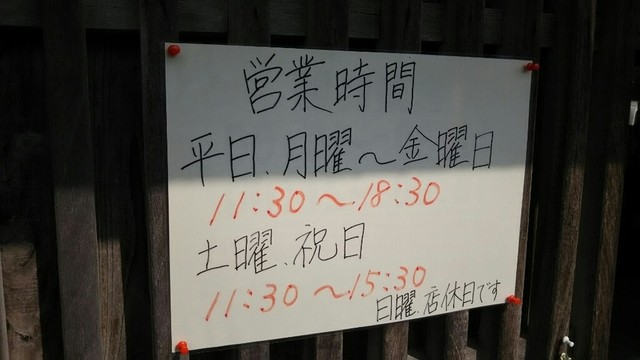 営業時間
平日、月曜～金曜日
11:30～18:30
土曜、祝日
11:30～15:30
日曜、店休日です